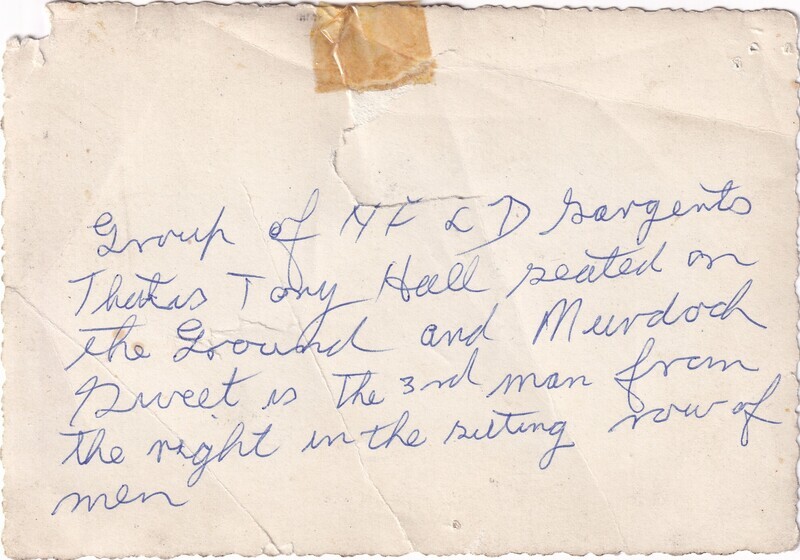 Group of NF & D Sargents
Thatis Tony Hall seated on
the Ground and Murdoch
Sweet is the 3rd man from
the right in the sitting row of
men